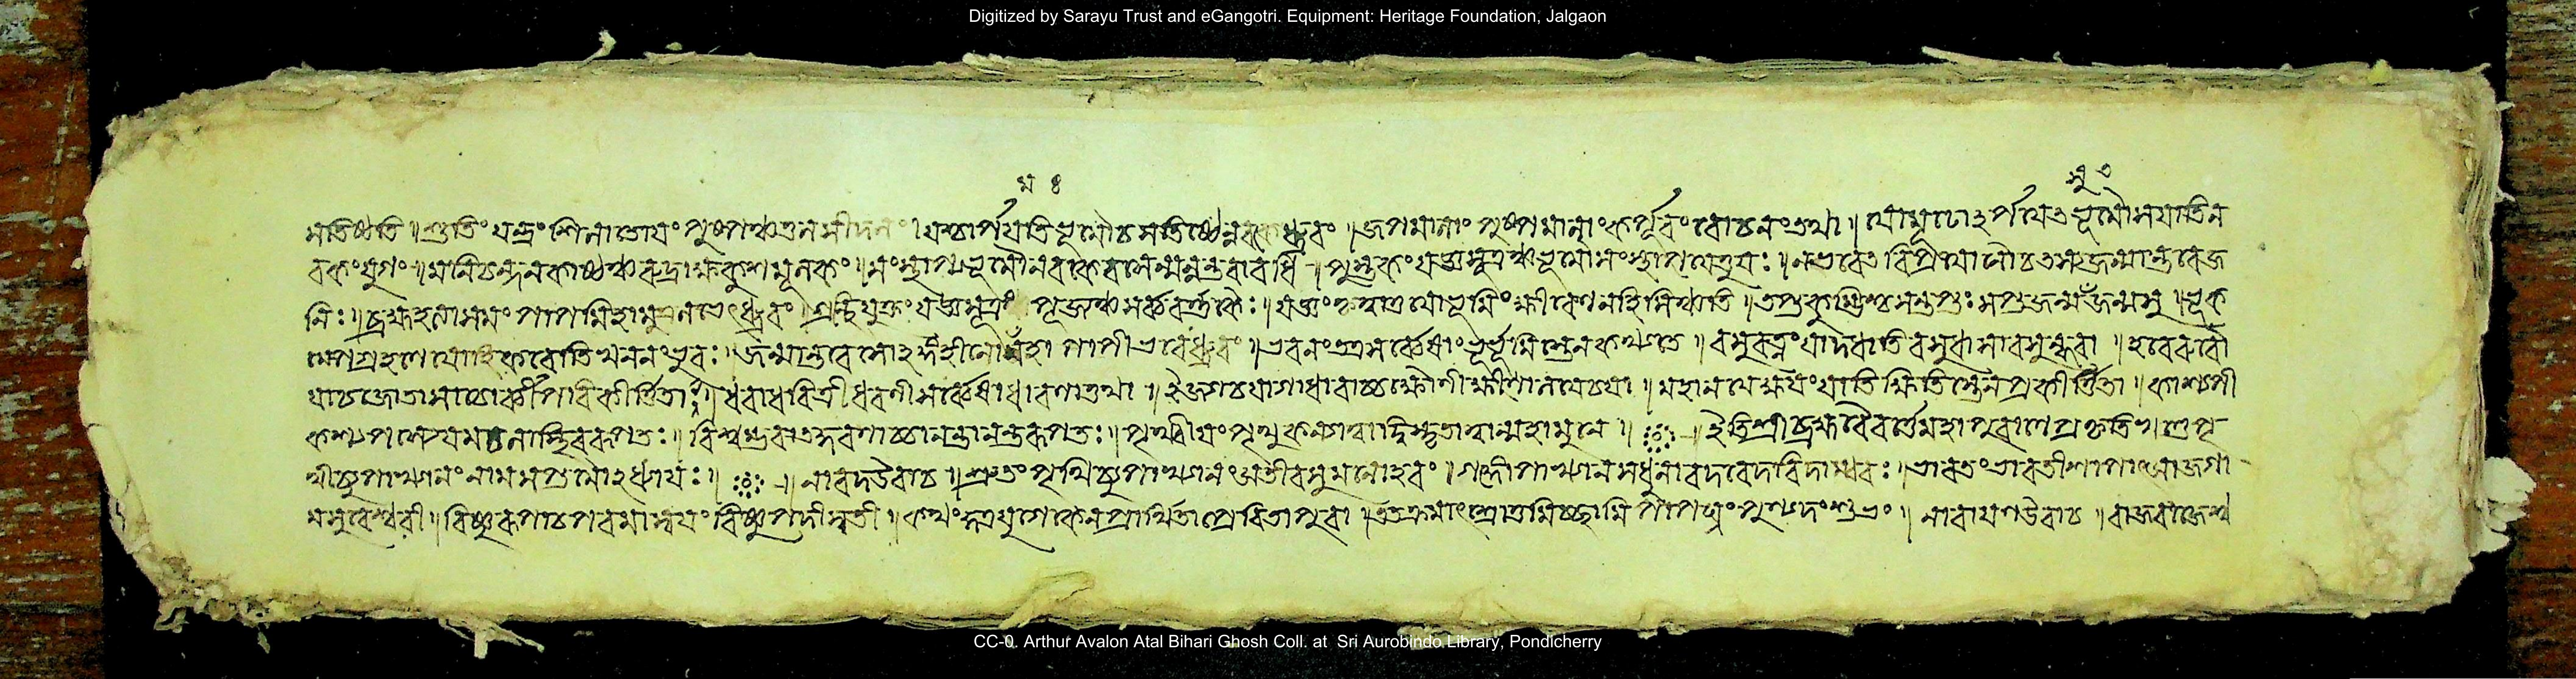 Digitized by Sarayu Trust and eGangotri. Equipment: Heritage Foundation, Jalgaon
মতিষ্ঠতি॥শুক্তিং যন্ত্রং শিলাতোয়ং পুষ্পঞ্চতুলসীদলং। যশ্চার্পয়তিভূমৌচ সতিষ্ঠেন্নরকেধ্রুবং॥জপমালাং পুষ্পমালাং কর্পূরং রোচনংতথা॥যোমূঢো২র্পয়েতভূমৌসযাতিন
রকংধ্রুবং॥ চন্দনকাষ্ঠঞ্চরুদ্রাক্ষকুশমূলকং॥সংস্থাপ্যভূমৌনরকেবসেন্মন্বন্তরাবধি॥পুস্তকং যজ্ঞসূত্রঞ্চভূমৌসংস্থাপয়েত্তুযঃ॥নভবেতবিপ্রযোনৌচতসজন্মান্তরেজ
নিঃ॥ব্রহ্মহত্যাসমং পাপমিহামুত্রলভেৎধ্রুবং॥গ্রন্থিযুক্তং যজ্ঞসূত্রং পূজ্যঞ্চসর্ব্ববর্ণকৈঃ॥যজ্ঞং কৃত্বাতুযোভূমিং ক্ষীরেণনহিসিঞ্চতি॥ ভূক
ম্পেগ্রহণেযোহিকরোতিখননংভুবঃ।জন্মান্তরে মহাপাপীভবেৎধ্রুবং॥ভবনং যত্রসর্ব্বেষাং ভূর্ভূমিস্তেনকথ্যতে॥বসুরত্নংযাদধাতিবসুধাসাবসুন্ধরা॥হরেরূরৌ
যাচজাতাসাচোর্ব্বীপরিকীর্ত্তিতা॥ধরাধরিত্রীধরণীসর্ব্বেষাংধারণাত্তথা॥ইজ্যাচযাগাধারাচ্চক্ষৌণীক্ষীণালয়েচযা॥মহালয়েক্ষয়ংযাতিক্ষিতিস্তেনপ্রকীর্ত্তিতা॥কাশ্যপী
কশ্যপস্যেয়মচলাস্থিররূপতঃ॥বিশ্বম্ভরাতদ্ধরণাচ্চানন্তানন্তরূপতঃ॥পৃথিবীয়ং পৃথুকন্যাত্বাদ্বিস্তৃতাত্বান্মহামুনে॥ইতিশ্রীব্রহ্মবৈবর্ত্তেমহাপুরাণেপ্রকৃতিখণ্ডেপৃ
থিব্যুপাখ্যানং নামসপ্তমো২ধ্যায়ঃ॥ নারদউবাচ॥শ্রুতং পৃথিব্যুপাখ্যানং অতীবসুমনোহরং।গঙ্গোপাখ্যানমধুনাবদবেদবিদাম্বরঃ।ভারতং ভারতীশাপাৎআজগা
মসুরেশ্বরী॥বিষ্ণুরূপাচপরমাস্বয়ং বিষ্ণুপদীসতী॥কথং কুত্রযুগেকেনপ্রার্থিতাপ্রেরিতাপুরা॥তৎক্রমংশ্রোতুমিচ্ছামিপাপঘ্নং পুণ্যদংশুভং॥ নারায়ণউবাচ॥রাজরাজেশ্ব
CC-0. Arthur Avalon Atal Bihari Ghosh Coll. at Sri Aurobindo Library, Pondicherry